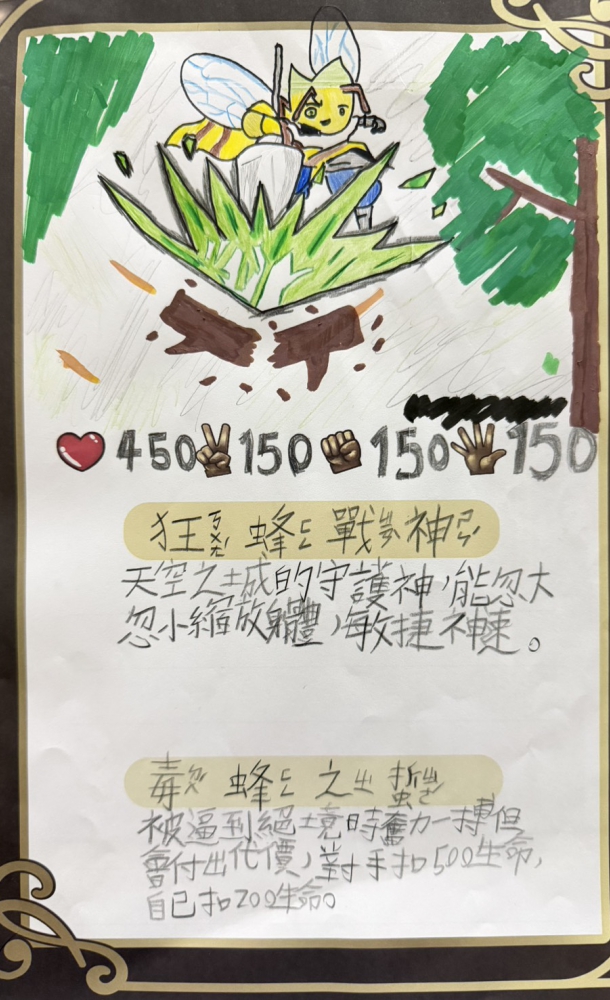 450 150 150 150
狂ㄎㄨㄤˊ 蜂ㄈㄥ 戰ㄓㄢˋ 神ㄕㄣˊ
天空之城的守護神，能忽大
忽小縮放身體，敏捷神速。
毒ㄉㄨˊ 蜂ㄈㄥ 之ㄓ 蜇ㄓㄜˊ
被逼到絕境時奮力一搏但
會付出代價，對手扣500生命，
自己扣200生命。